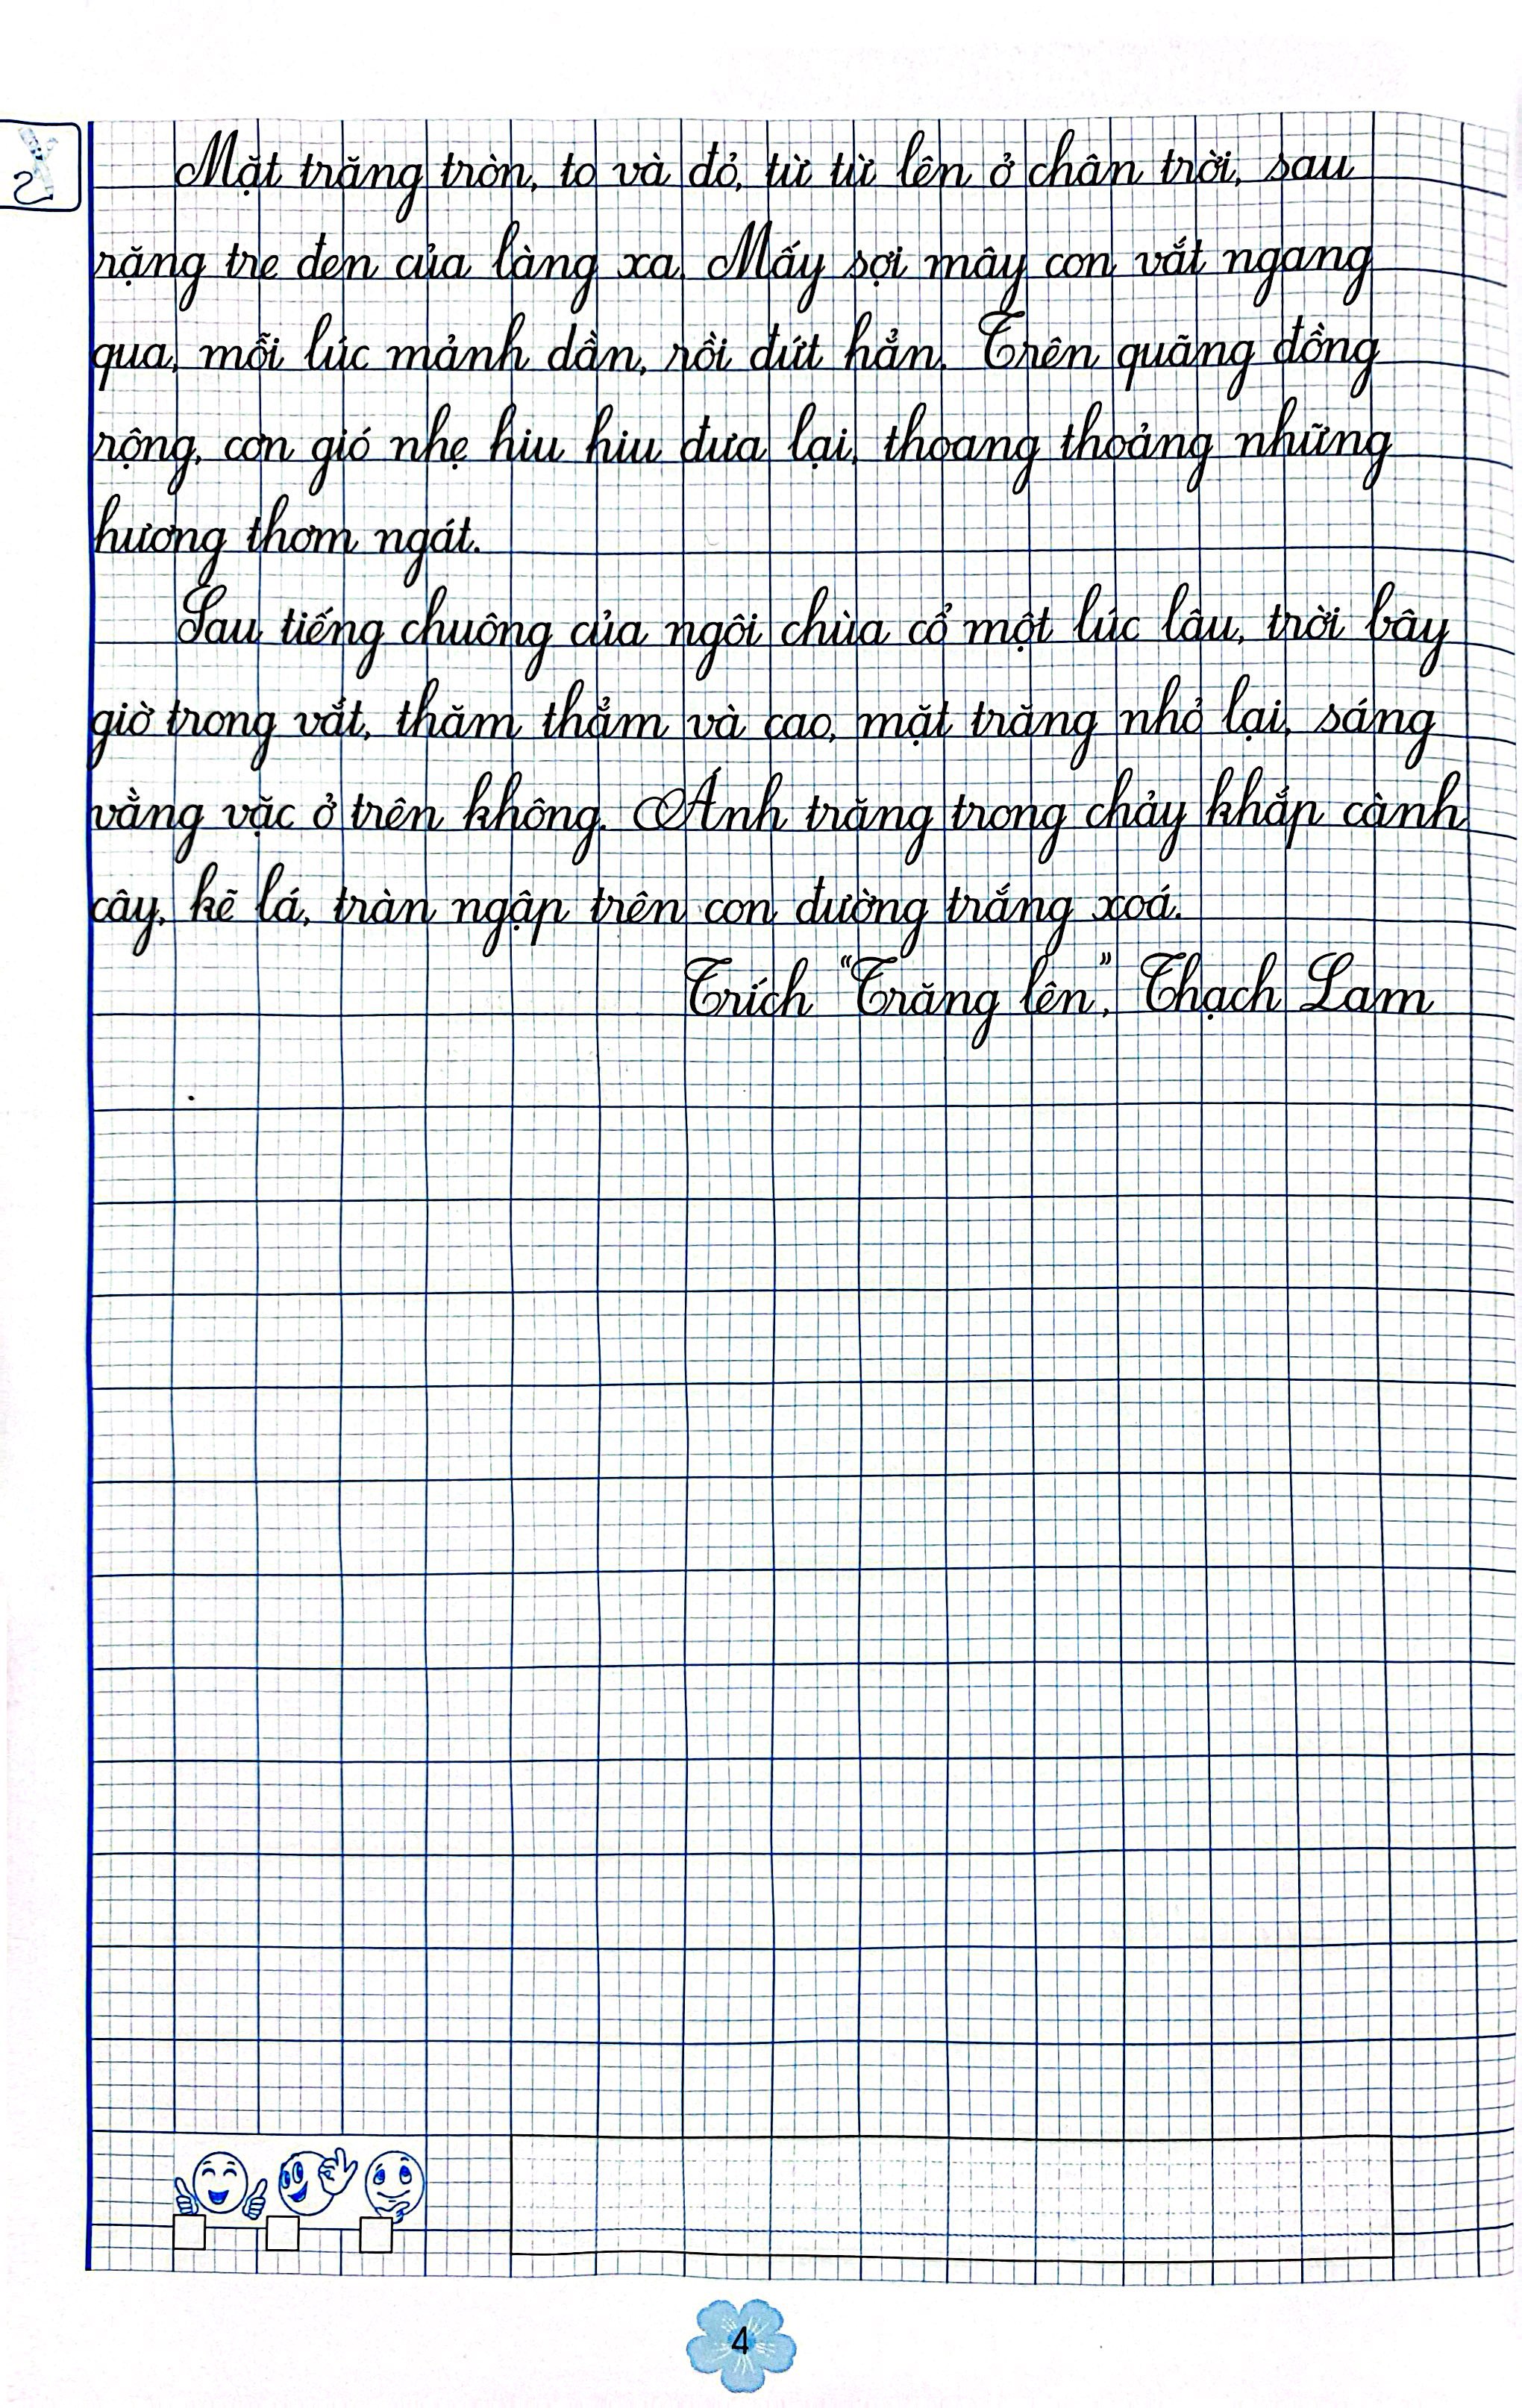 2
Mặt trăng tròn, to và đỏ, từ từ lên ở chân trời, sau
rặng tre đen của làng xa. Mấy sợi mây con vắt ngang
qua, mỗi lúc mảnh dần, rồi đứt hẳn. Trên quãng đồng
rộng, cơn gió nhẹ hiu hiu đưa lại, thoang thoảng những
hương thơm ngát.
Sau tiếng chuông của ngôi chùa cổ một lúc lâu, trời bây
giờ trong vắt, thăm thẳm và cao, mặt trăng nhỏ lại, sáng
vằng vặc ở trên không. Ánh trăng trong chảy khắp cành
cây, kẽ lá, tràn ngập trên con đường trắng xoá.
Trích "Trăng lên", Thạch Lam
4